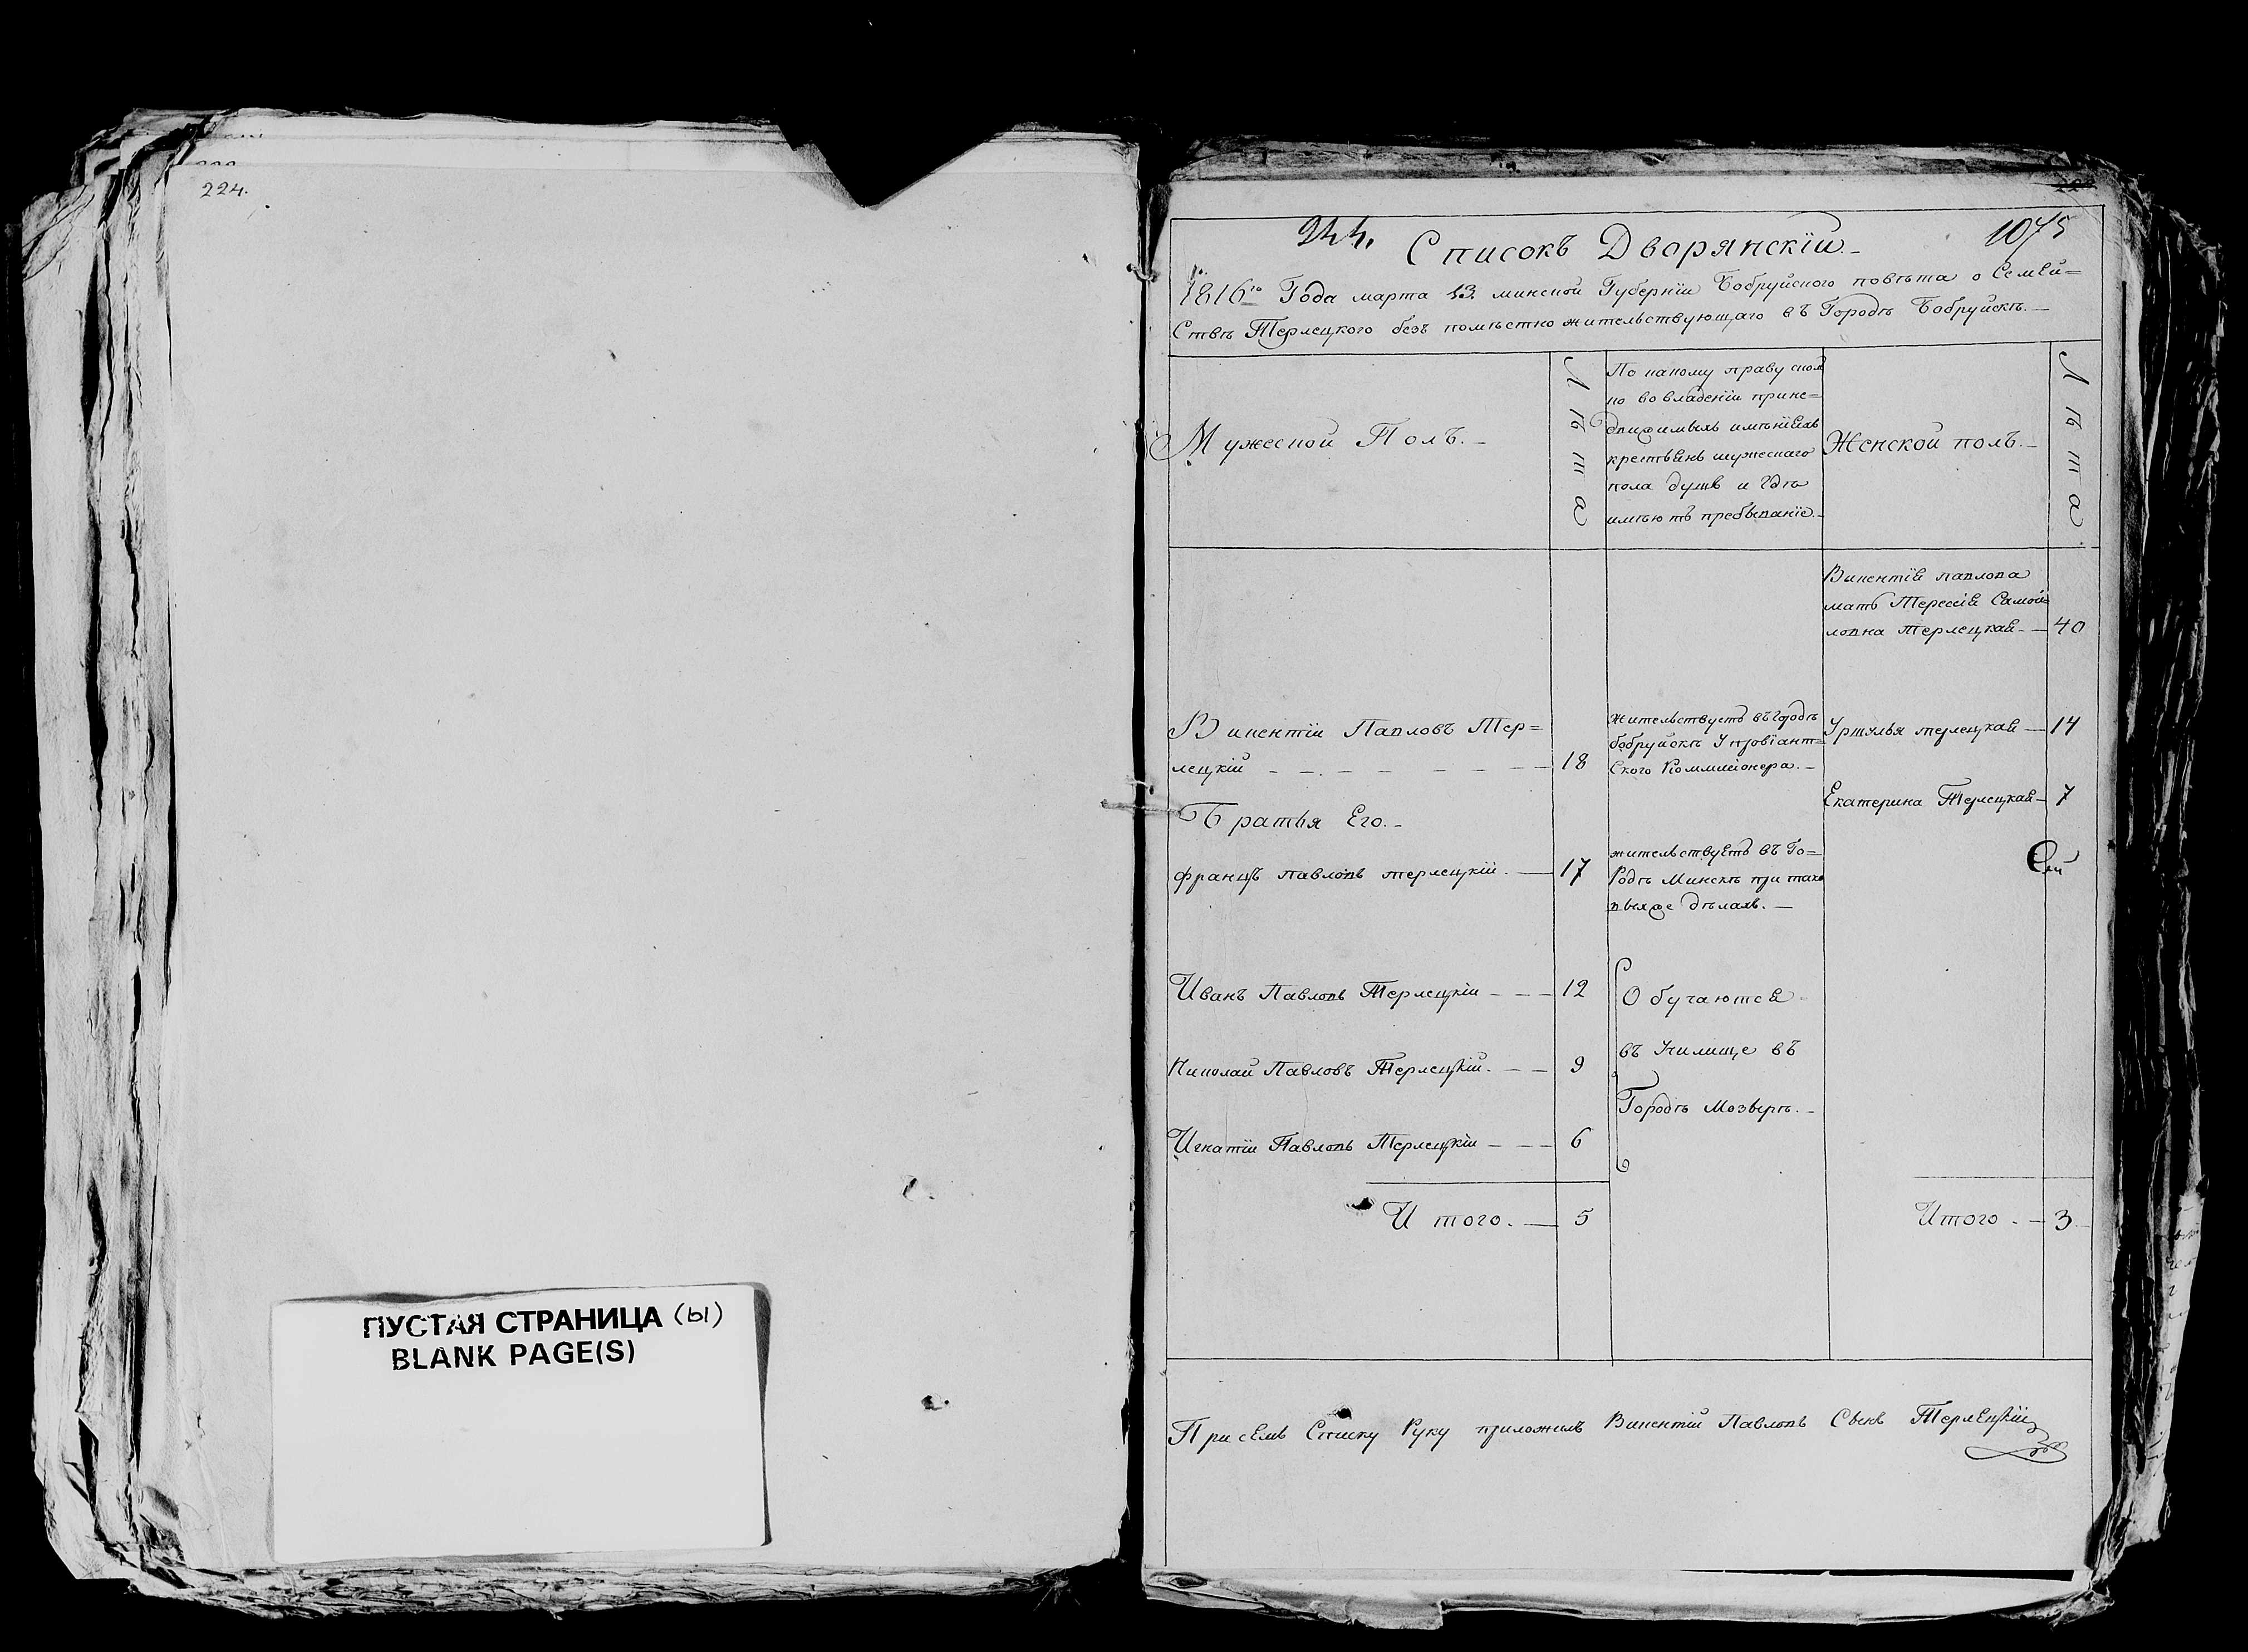 224.
ПУСТАЯ СТРАНИЦА (ы)
BLANK PAGE(S)
244. 1075
Списокъ Дворянскій.
1816го Года марта 13. минской Губерніи Бобруйского повѣта о Семей=
Ствѣ Терлецкого безъ помѣстно жительствующаго въ Городѣ Бобруйскѣ.
Мужеской Полъ.
Лѣта
По какому праву
но во владеніи прине=
движимыхъ имѣніяхъ
крестьянъ мужескаго
пола душъ и Гдѣ
имѣютъ пребываніе
Женской полъ.
Лѣта
Викентія павлова
мать Тересія Самой=
ловна терлецкая 40
Викентіи Павловъ Тер=
лецкій 18
жительствуетъ въ Городѣ
бобруйскѣ У провіант=
Ского Коммисіонера.
Уршулья терлецкая 14
Екатерина Терлецкая 7
Братья Его.
францъ павловъ терлецкій. 17
жительствуетъ въ Го=
Родѣ Минскѣ при тако
выхже дѣлахъ.
Иванъ Павловъ Терлецкіи 12
Николай Павловъ Терлецкій. 9
Игнатіи Павловъ Терлецкіи 6
Обучаются
въ Училище въ
Городѣ Мозырѣ.
И того. 5
Итого 3
При семъ Списку Руку приложилъ Викентій Павловъ Сынъ Терлецкій